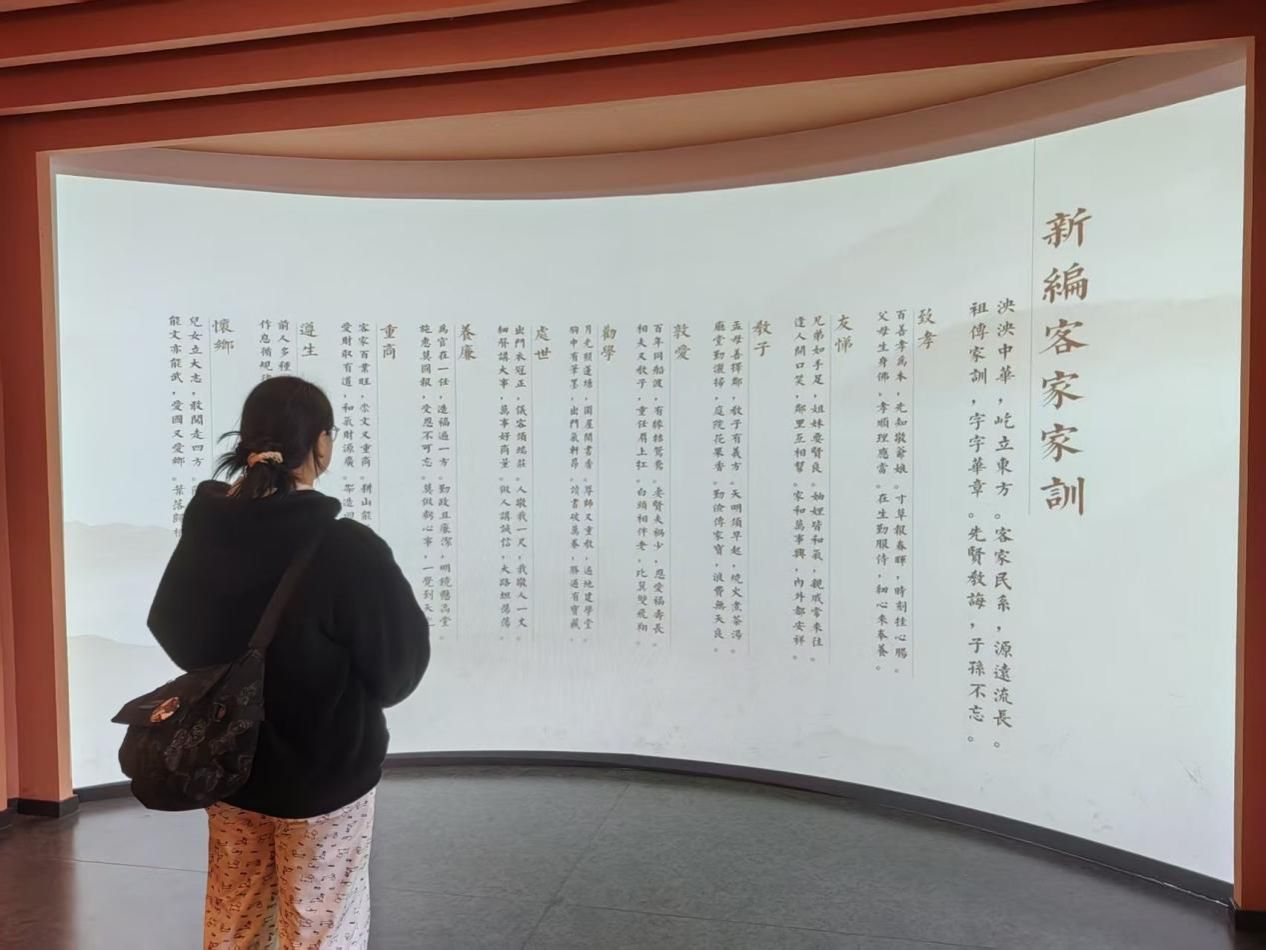 新編客家家訓
泱泱中華，屹立東方。客家民系，源遠流長。
祖傳家訓，字字華章。先賢教誨，子孫不忘。
致孝
百善孝為本，先知敬爺娘。寸草報春暉，時刻掛心腸。
父母生身佛，孝順理應當。在生勤服侍，細心來奉養。
友悌
兄弟如手足，姐妹要賢良。妯娌皆和氣，親戚常來往。
逢人開口笑，鄰里互相幫。家和萬事興，內外都安祥。
教子
孟母善擇鄰，教子有義方。天明須早起，燒火煮茶湯。
廳堂勤灑掃，庭院花果香。勤儉傳家寶，浪費無天良。
敦愛
百年同船渡，有緣結鴛鴦。妻賢夫禍少，恩愛福壽長。
相夫又教子，重任肩上扛。白頭相伴老，比翼雙飛翔。
勸學
月光照蓮塘，圍屋聞書香。尊師又重教，遍地建學堂。
胸中有筆墨，出門氣軒昂。讀書破萬卷，勝過有寶藏。
處世
出門衣冠正，儀容須端莊。人敬我一尺，我敬人一丈。
細聲講大事，萬事好商量。做人講誠信，大路坦蕩蕩。
養廉
為官在一任，造福過一方。勤政且廉潔，明鏡懸高堂。
施惠莫圖報，受恩不可忘。莫做虧心事，一覺到天
重商
客家百業旺，崇文又重商。耕山能
愛財取有道，和氣財源廣。
遵生
前人多種
作息循規
懷鄉
兒女立大志，敢闖走四方。
能文亦能武，愛國又愛鄉。葉落歸